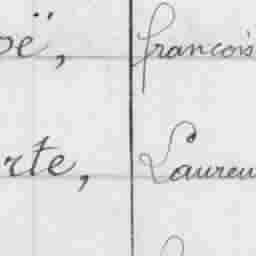 oë, francois
rte, Lauren